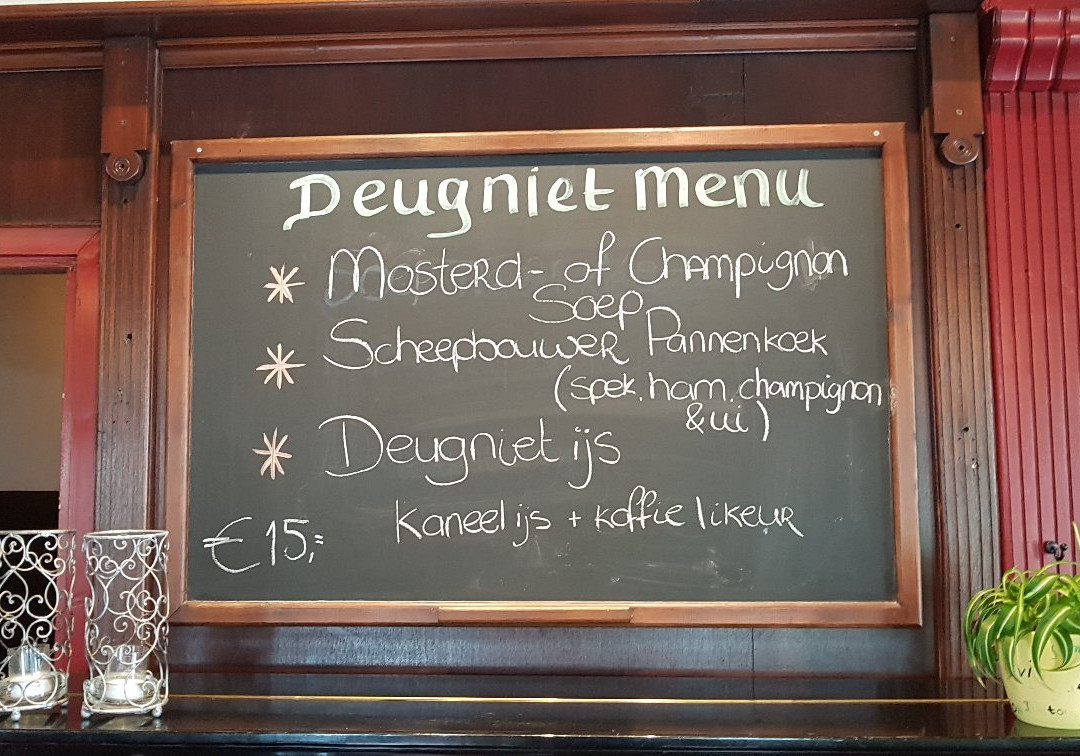 Deugniet Menu
* Mosterd- of Champignon
Soep
* Scheepbouwer Pannenkoek
(spek, ham, champignon
& ui)
* Deugniet ijs
kaneel ijs + koffie likeur
€ 15,=